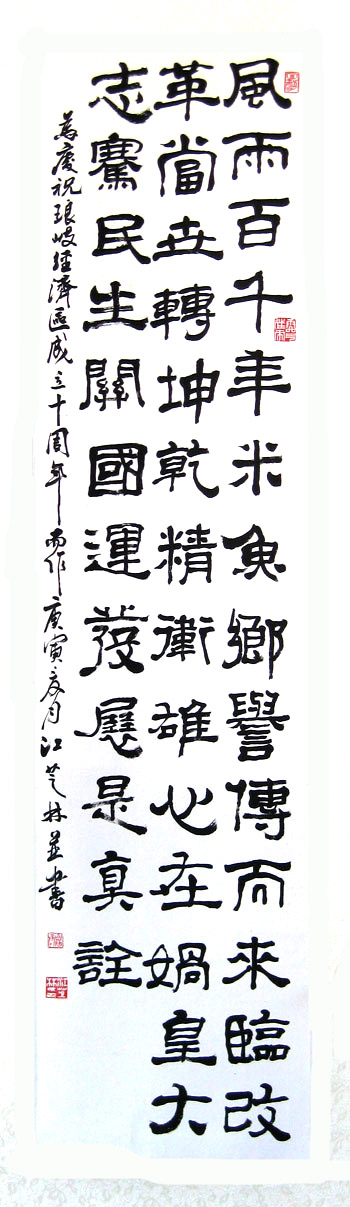 風雨百千年米魚鄉譽傳而來臨改
革當世轉坤乾精衛雄心在媧皇大
志騫民生關國運發展是真詮
為慶祝琅岐經濟區成立十周年而作庚寅夏月江芝林並書